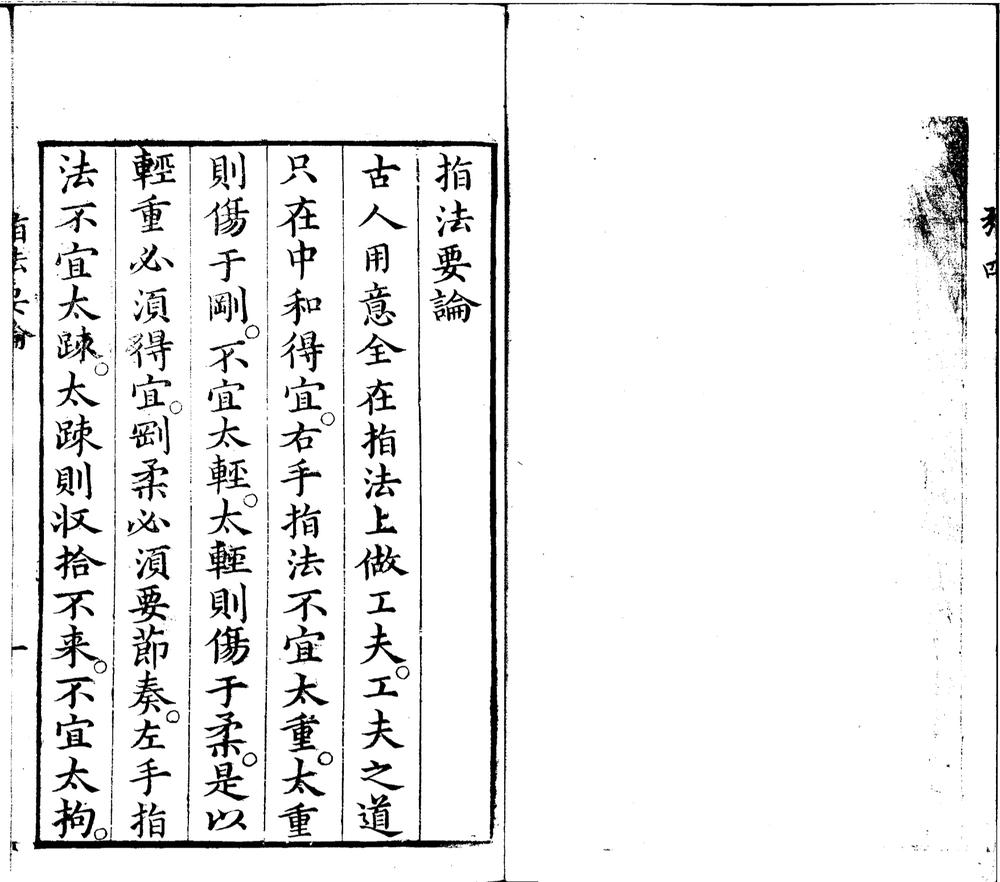 指法要論
古人用意全在指法上做工夫。工夫之道
只在中和得宜。右手指法不宜太重。太重
則傷于剛。不宜太輕。太輕則傷于柔。是以
輕重必須得宜。剛柔必須要節奏。左手指
法不宜太踈。太踈則收拾不来。不宜太拘。
指法要論
一